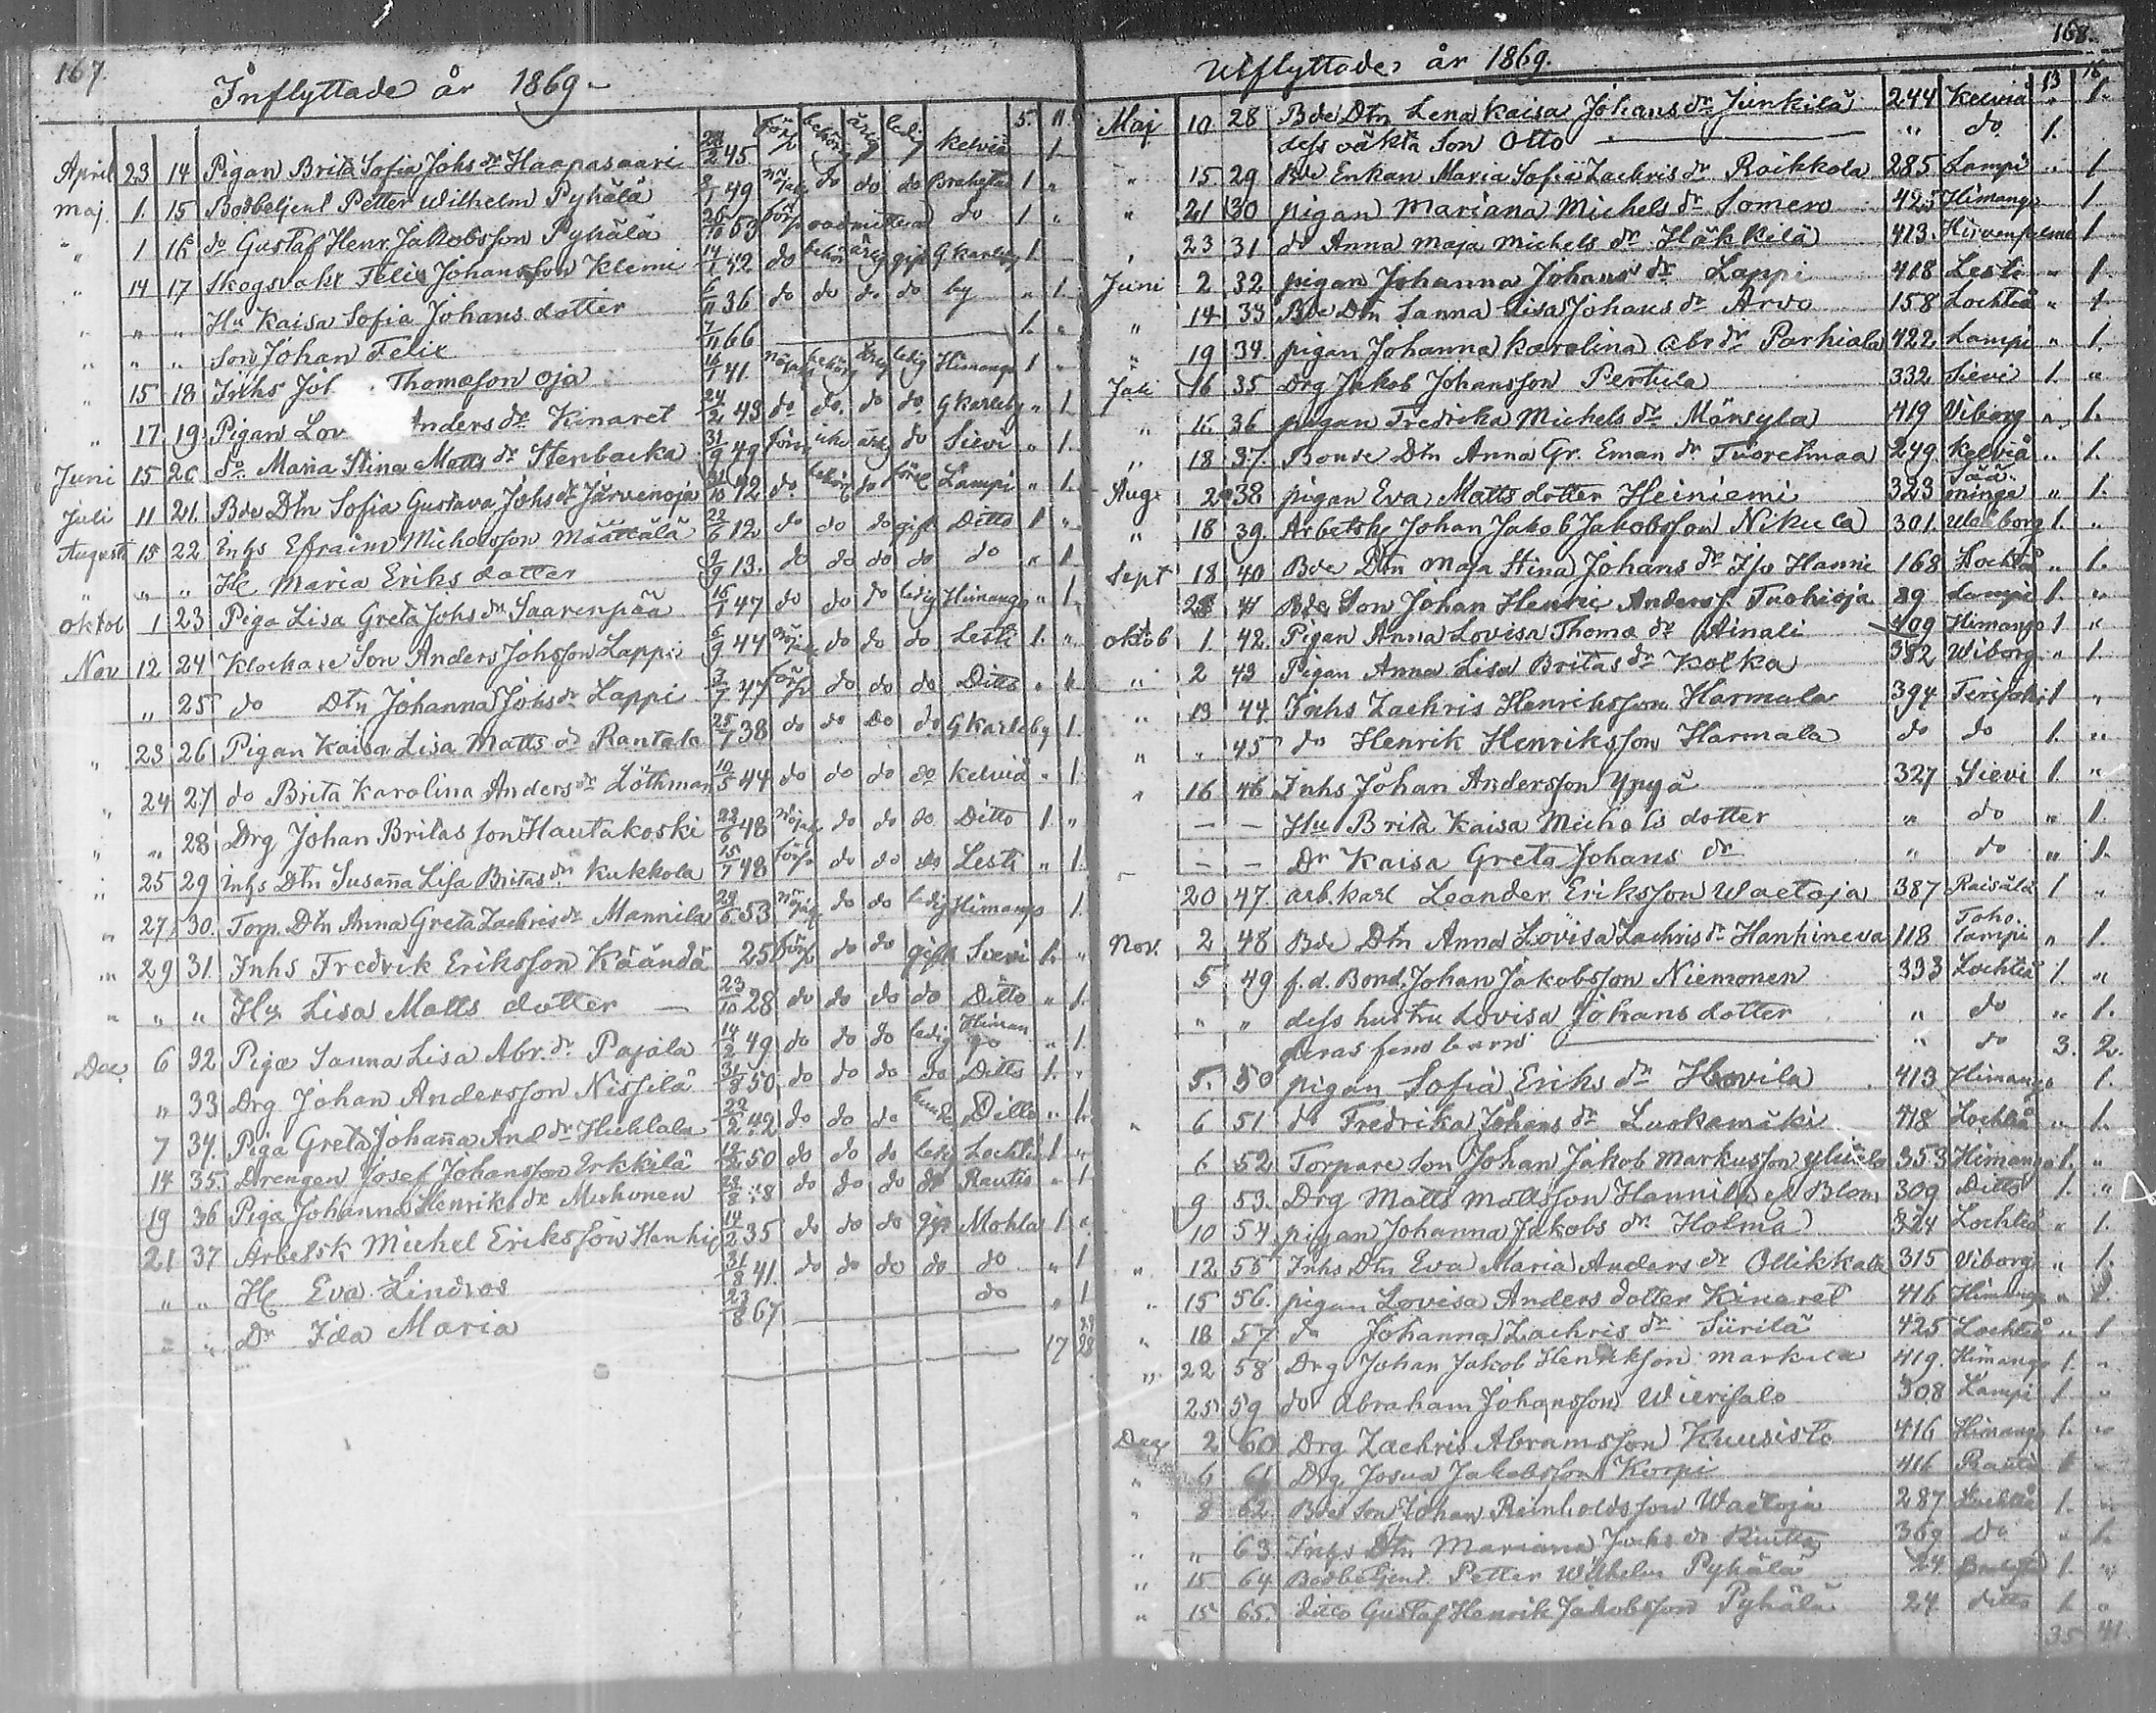 167.
Inflyttade år 1869.
5. 11.
April 23 14 Pigan Brita Sofia Johs dr Haapasaari 45 kelviå 1
Maj. 1. 15 Bodbetjent Petter Wilhelm Pyhälä 8/7 49 do do do Brahestad 1 "
" 1 16 do Gustaf Henr. Jakobsson Pyhälä 26/10 53 oadmitterad do 1 "
" 14 17 Skogsvakt Felix Johansson Klemi 14/1 42 do gift G karleby 1
" " " Hu Kaisa Sofia Johans dotter 6/11 36 do do do do by " 1.
" " " Son Johan Felix 7/11 66 1. "
" 15 18 Inhs Thomasson Oja 16/1 41. ledig Himango 1 "
" 17 19 Pigan Anders dr Kinaret 24/2 43 do do. do do. G karleby " 1
Juni 15 20 do Maria Stina Matts dr Stenbacka 49 do Sievi " 1.
Juli 11 21. Bde Dtn Sofia Gustava Johs dr Järvenoja do. do Lampi " 1.
Augusti 15 22 Inhs Efraim Michelsson Määttälä 22/6 12 do do do gift Ditto 1 "
" " " Hu Maria Eriks dotter 9/9 13. do do do do do " 1
Oktob 1 23 Piga Lisa Greta Johs dr Saarenpää 16/1 47 do do do ledig Himango " 1.
Nov 12 24 Klockare Son Anders Johsson Lappi 6/9 44 do do do Lesti 1. "
" 25 do Dtn Johanna Johs dr Lappi 47 do do do Ditto " 1
" 23 26 Pigan Kaisa Lisa Matts dr Rantala 25/7 38 do do do do G Karleby 1.
" 24 27 do Brita Karolina Anders dr Löthman 10/5 44 do do do do kelviå " 1.
" " 28 Drg Johan Britas son Hautakoski 22/6 48 do do do Ditto 1. "
" 25 29 inhs Dtn Susanna Lisa Britas dr Kukkola 15/7 48 do do do Lesti " 1.
" 27. 30. Torp. Dtn Anna Greta Zachris dr Mannila 53 do do ledig Himango 1.
" 29 31. Inhs Fredrik Eriksson Käändä 25 do do gift Sievi 1. "
" " " Hu Lisa Matts dotter 23/10 28 do do do do Ditto " 1.
Dec. 6 32 Piga Sanna Lisa Abr. dr Pajala 14/2 49 do do do ledig Himango " 1.
" 33 Drg Johan Andersson Nissilä 31/8 50 do do do do Ditto 1. "
7 34. Piga Greta Johanna And dr Huhtala 22/2 42 do do do Ditto " 1.
14 35. Drengen Josef Johansson Erkkilä 50 do do do Lochteå 1 "
19 36 Piga Johanna Henriks dr Muhonen 8 do do do do Rautis " 1
21 37 Arbetsk Michel Eriksson 14/2 35 do do do gift Mohla 1 "
" " Hu Eva Lindros 31/8 41. do do do do do " 1
" " Dr Ida Maria 23/8 67 do " 1
17 28
168.
Utflyttade år 1869.
13 16
Maj 10 28 Bde Dtn Lena Kaisa Johans dr Junkilä 244 Kelviå " 1.
dess oäkta Son Otto " do 1.
" 15 29 Bde Enkan Maria Sofia Zachris dr Raikkola 285 Lampi " 1
" 21 30 pigan Mariana Michels dr Somero 425 Himango 1.
" 23 31 do Anna Maja Michels dr Häkkilä 413. Hirvensalmi 1
Juni 2 32 pigan Johanna Johans dr Lappi 408 Lesti " 1.
" 14 33 Bde Dtn Sanna Lisa Johans dr Arvo 158 Lochteå " 1.
" 19 34. pigan Johanna Karolina Abr dr Parhiala 422 Lampi " 1.
Juli 16 35 Drg Jakob Johansson Pertula 332 Sievi 1. "
" 16 36 pigan Fredrika Michels dr Mänsylä 419 Viborg " 1.
" 18 37. Bonde Dtn Anna Gr. Eman dr Tuoretmaa 249 Kelviå " 1.
Aug. 2 38 pigan Eva Matts dotter Heiniemi 323 Sääminge " 1.
" 18 39. Arbetsk Johan Jakob Jakobsson Nikula 301. Uleåborg 1. "
Sept 18 40 Bde Dtn Maja Stina Johans dr Hanni 168 Lochteå " 1.
28 41 Bde Son Johan Henric Anders s. Tuohioja 89 Lampi 1. "
Oktob 1. 42. Pigan Anna Lovisa Thomæ dr Ainali 409 Himango 1 "
" 2 43 Pigan Anna Lisa Britas dr Kolka 382 Wiborg " 1
" 13 44. Inhs Zachris Henriksson Harmala 394 Terijoki 1 "
" " 45 do Henrik Henriksson Harmala do do 1. "
" 16 46 Inhs Johan Andersson Ypyä 327 Sievi 1. "
— — Hu Brita Kaisa Michels dotter " do " 1.
— — Dr Kaisa Greta Johans dr " do " 1.
20 47. arb. karl Leander Eriksson Waetoja 387 Raisälä 1 "
Nov. 2 48 Bde Dtn Anna Lovisa Zachris dr Hanhineva 118 Toholampi " 1.
5 49 f. d. Bond. Johan Jakobsson Niemonen 333 Lochteå 1. "
" " dess hustru Lovisa Johans dotter " do " 1.
deras fem barn " do 3. 2.
5. 50 pigan Sofia Eriks dr Hovila 413 Himango 1.
" 6 51. do Fredrika Johans dr Luokamäki 418 Lochteå " 1.
6 52 Torpare Son Johan Jakob Markusson 353 Himango 1. "
9 53. Drg Matts Mattsson Hannila el Blom 309 Ditto 1. "
10 54. pigan Johanna Jakobs dr Holma 324 Lochteå " 1.
" 12 55 Inhs Dtn Eva Maria Anders dr Ollikkala 315 Viborg " 1.
" 15 56. pigan Lovisa Anders dotter Kinaret 416 Himango " 1.
" 18 57 do Johanna Zachris dr Siirilä 425 Lochteå " 1
" 22 58 Drg Johan Jakob Henriksson Markula 419. Himango 1. "
25 59 do Abraham Johansson Wierisalo 308 Lampi 1. "
Dec 2 60 Drg Zachris Abramsson Kuusisto 416 Himango 1. "
" 6 61 Drg Josua Jakobsson Korpi 416 Rautis 1 "
" 8 62 Bde Son Johan Reinholdsson Waetoja 287 Lochteå 1. "
" " 63 Inhs Dtn Mariana 369 Do " 1.
" 15 64 Bodbetjent Petter Wilhelm Pyhälä 24 1. "
" 15 65. ditto Gustaf Henrik Jakobsson Pyhälä 24. ditto 1. "
35 41.